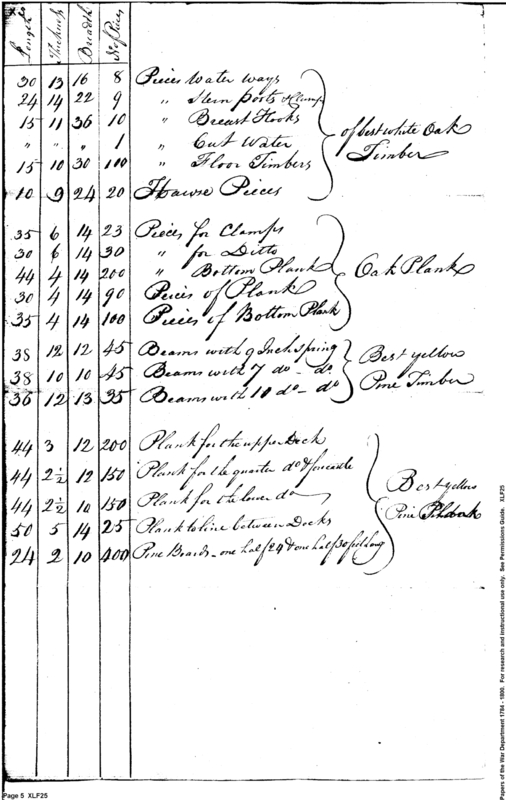 Length Thickness Breadth No of Pieces
30 13 16 8 Pieces Water ways
24 14 22 9 " Stern posts & Clamps
15 11 36 10 " Breast Hooks
" " " 1 " Cut Water
15 10 30 100 " Floor Timbers
10 9 24 20 Hawse Pieces
of best white Oak
Timber
35 6 14 23 Pieces for Clamps
30 6 14 30 " for Ditto
44 4 14 200 " Bottom Plank
30 4 14 90 Peices of Plank
35 4 14 100 Pieces of Bottom Plank
Oak Plank
38 12 12 45 Beams with 9 Inch spring
38 10 10 45 Beams with 7 do - do
36 12 13 35 Beams with 10 do - do
Best yellow
Pine Timber
44 3 12 200 Plank for the upper Deck
44 2½ 12 150 Plank for the quarter do & forecastle
44 2½ 10 150 Plank for the lower do
50 5 14 25 Plank to line between Decks
24 2 10 400 Pine Boards - one half 24 & one half 30 feet long
Best yellow
Pine
Page 5 XLF25
Papers of the War Department 1784 - 1800. For research and instructional use only. See Permissions Guide. XLF25